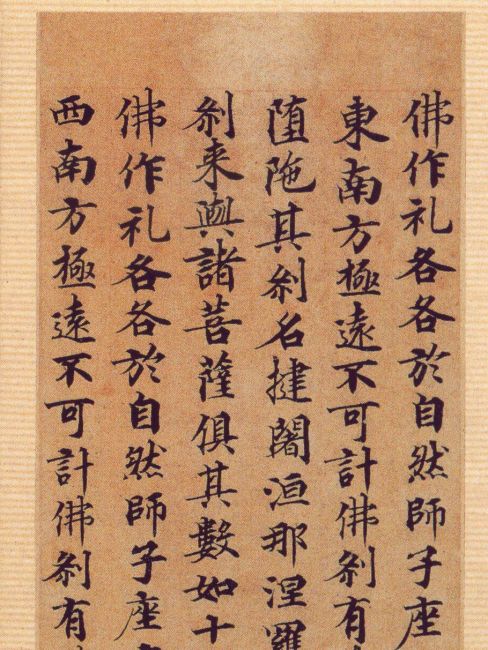 佛作礼各各於自然師子座
東南方極遠不可計佛刹有
堕陁其刹名揵闍洹那涅羅
刹来與諸菩薩俱其數如十
佛作礼各各於自然師子座
西南方極遠不可計佛刹有